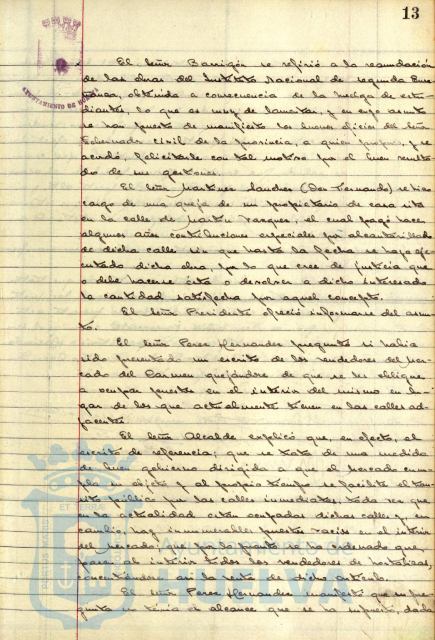 13
El Señor Barrigón se refirió a la reanudación
de las obras del Instituto Nacional de segunda Ense-
ñanza, obtenida a consecuencia de la huelga de estu-
diantes, lo que es muy de lamentar, y en cuyo asunto
se han puesto de manifiesto los buenos oficios del Señor
Gobernador Civil de la provincia, a quien propuso, y se
acordó, felicitarle con tal motivo por el buen resulta-
do de sus gestiones.
El Señor Martinez Sanchez (Don Fernando) se hizo
cargo de una queja de un propietario de casa sita
en la calle de Martin Vazquez, el cual pagó hace
algunos años contribuciones especiales por alcantarillado
de dicha calle sin que hasta la fecha se haya eje-
cutado dicha obra, por lo que cree de justicia que
o debe hacerse ésta o devolver a dicho interesado
la cantidad satisfecha por aquel concepto.
El Señor Presidente ofreció informarse del asun-
to.
El Señor Perez Hernandez preguntó si había
sido presentado un escrito de los vendedores del Mer-
cado del Carmen quejándose de que se les obligue
a ocupar puestos en el interior del mismo en lu-
gar de los que actualmente tienen en las calles ad-
yacentes.
El Señor Alcalde explicó que, en efecto, el
escrito de referencia; que se trata de una medida
de buen gobierno dirigida a que el Mercado cum-
pla su objeto y al propio tiempo se facilite el tran-
sito público por las calles inmediatas, toda vez que
en la actualidad están ocupadas dichas calles y en
cambio, hay innumerables puestos vacios en el interior
del Mercado; y que por lo pronto se ha ordenado que
pasen al interior todos los vendedores de hortalizas,
concentrándose así la venta de dicho artículo.
El Señor Perez Hernandez manifestó que su pre-
gunta no tenia el alcance que se ha supuesto, dada
AYUNTAMIENTO DE HUELVA
Ayuntamiento de
HUELVA